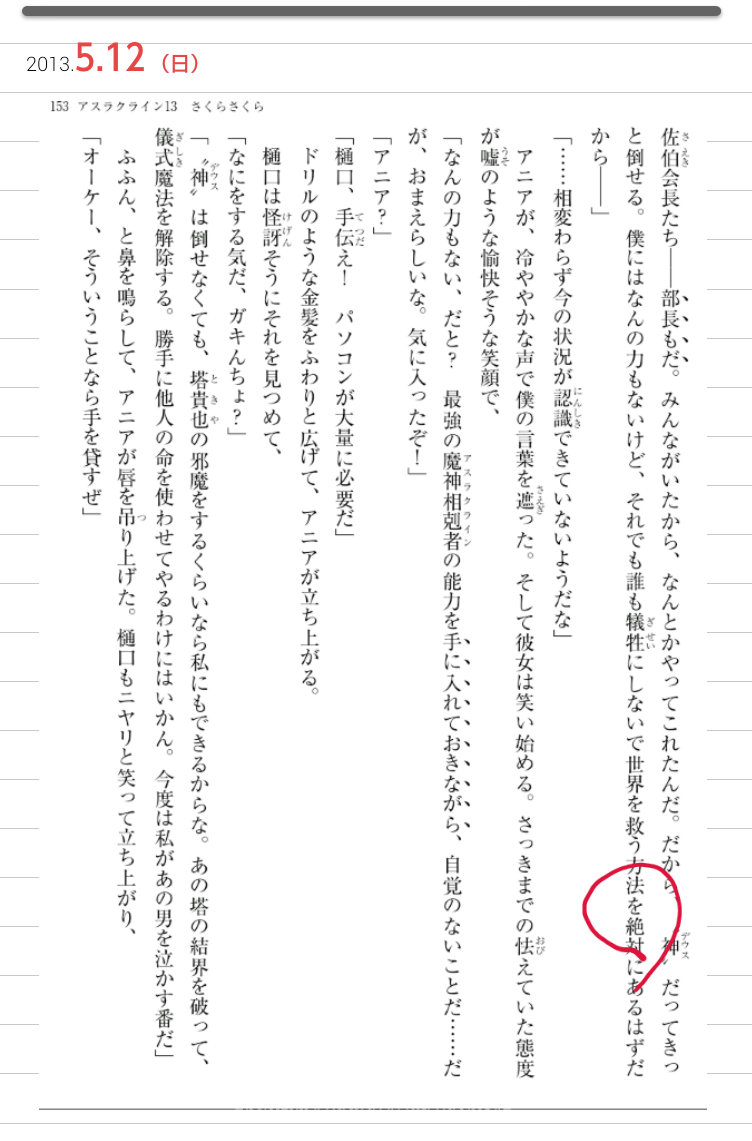 2013.5.12（日）
153 アスラクライン13 さくらさくら
佐伯会長たち――部長もだ。みんながいたから、なんとかやってこれたんだ。だから、〝神〟だってきっ
と倒せる。僕にはなんの力もないけど、それでも誰も犠牲にしないで世界を救う方法を絶対にあるはずだ
から――」
「……相変わらず今の状況が認識できていないようだな」
アニアが、冷ややかな声で僕の言葉を遮った。そして彼女は笑い始める。さっきまでの怯えていた態度
が嘘のような愉快そうな笑顔で、
「なんの力もない、だと？　最強の魔神相剋者の能力を手に入れておきながら、自覚のないことだ……だ
が、おまえらしいな。気に入ったぞ！」
「アニア？」
「樋口、手伝え！　パソコンが大量に必要だ」
ドリルのような金髪をふわりと広げて、アニアが立ち上がる。
樋口は怪訝そうにそれを見つめて、
「なにをする気だ、ガキんちょ？」
「〝神〟は倒せなくても、塔貴也の邪魔をするくらいなら私にもできるからな。あの塔の結界を破って、
儀式魔法を解除する。勝手に他人の命を使わせてやるわけにはいかん。今度は私があの男を泣かす番だ」
ふふん、と鼻を鳴らして、アニアが唇を吊り上げた。樋口もニヤリと笑って立ち上がり、
「オーケー、そういうことなら手を貸すぜ」